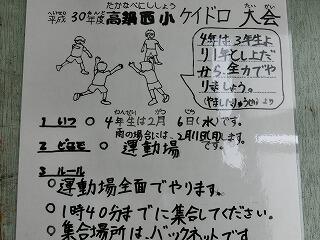 たかなべにししょう
へいせい ねんど たい かい
平成30年度 高鍋西小 ケイドロ 大会
4年は3年生よ
り1年としよ上だ
から全力でや
りましょう。
より
1 いつ ○ 4年生は2月6日(水)です。
雨の場合には、2月11日(月)です。
2 どこで ○ 運動場
3 ルール
○運動場全面でやります。
○1時40分までに集合してください。
○集合場所は、バックネットです